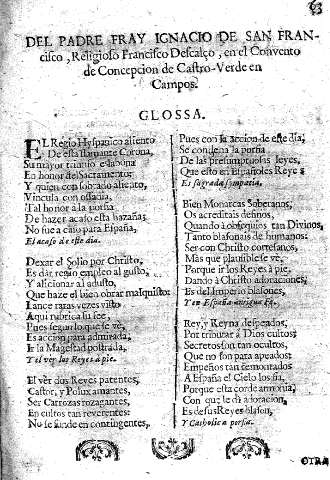 63
DEL PADRE FRAY IGNACIO DE SAN FRAN-
cisco, Religioso Francisco Descalço, en el Convento
de Concepcion de Castro-Verde en
Campos.
GLOSSA.
EL Regio Hyspanico assiento
De esta flamante Corona,
Su mayor triunfo eslabona
En honor del Sacramento;
Y quien con soberano aliento,
Vincula con ossadia,
Tal honor à la porfia
De hazer acaso esta hazaña;
No fue acaso para España,
El acaso de este dia.
Dexar el Solio por Christo,
Es dàr regio empleo al gusto,
Y aficionar al
Que haze el bien obrar
Lance raras vezes visto
Aqui rubrica su fee,
Pues segun lo que se vè,
Es accion para admirada,
Ir la Magestad postrada,
Y el ver los Reyes à pie.
El vèr dos Reyes patentes,
Castor, y Polux amantes,
Ser Carrozas rozagantes,
En cultos tan reverentes:
No se funde en contingentes,
Pues con la accion de este dia,
Se condena la porfia
De las presumptuosas leyes,
Que esto en Españoles Reyes
Es sagrada simpatia.
Bien Monarcas Soberanos,
Os acreditais definos,
Quando à obsequios tan Divinos,
Tanto blasonais de humanos:
Ser con Christo cortesanos,
Màs que plausible se vè,
Porque ir los Reyes à pie,
Dando à Christo adoraciones,
Es del Imperio blasones,
Y en España antigua fè.
Rey, y Reyna despeados,
Por tributar à Dios cultos,
Secretos son tan ocultos,
Que no son para apeados:
Empeños tan remontados
A España el Cielo los fia,
Porque esta corde armonia,
Con que le dà adoracion,
Es de sus Reyes blason,
Y Catholica porfia.
OTRA